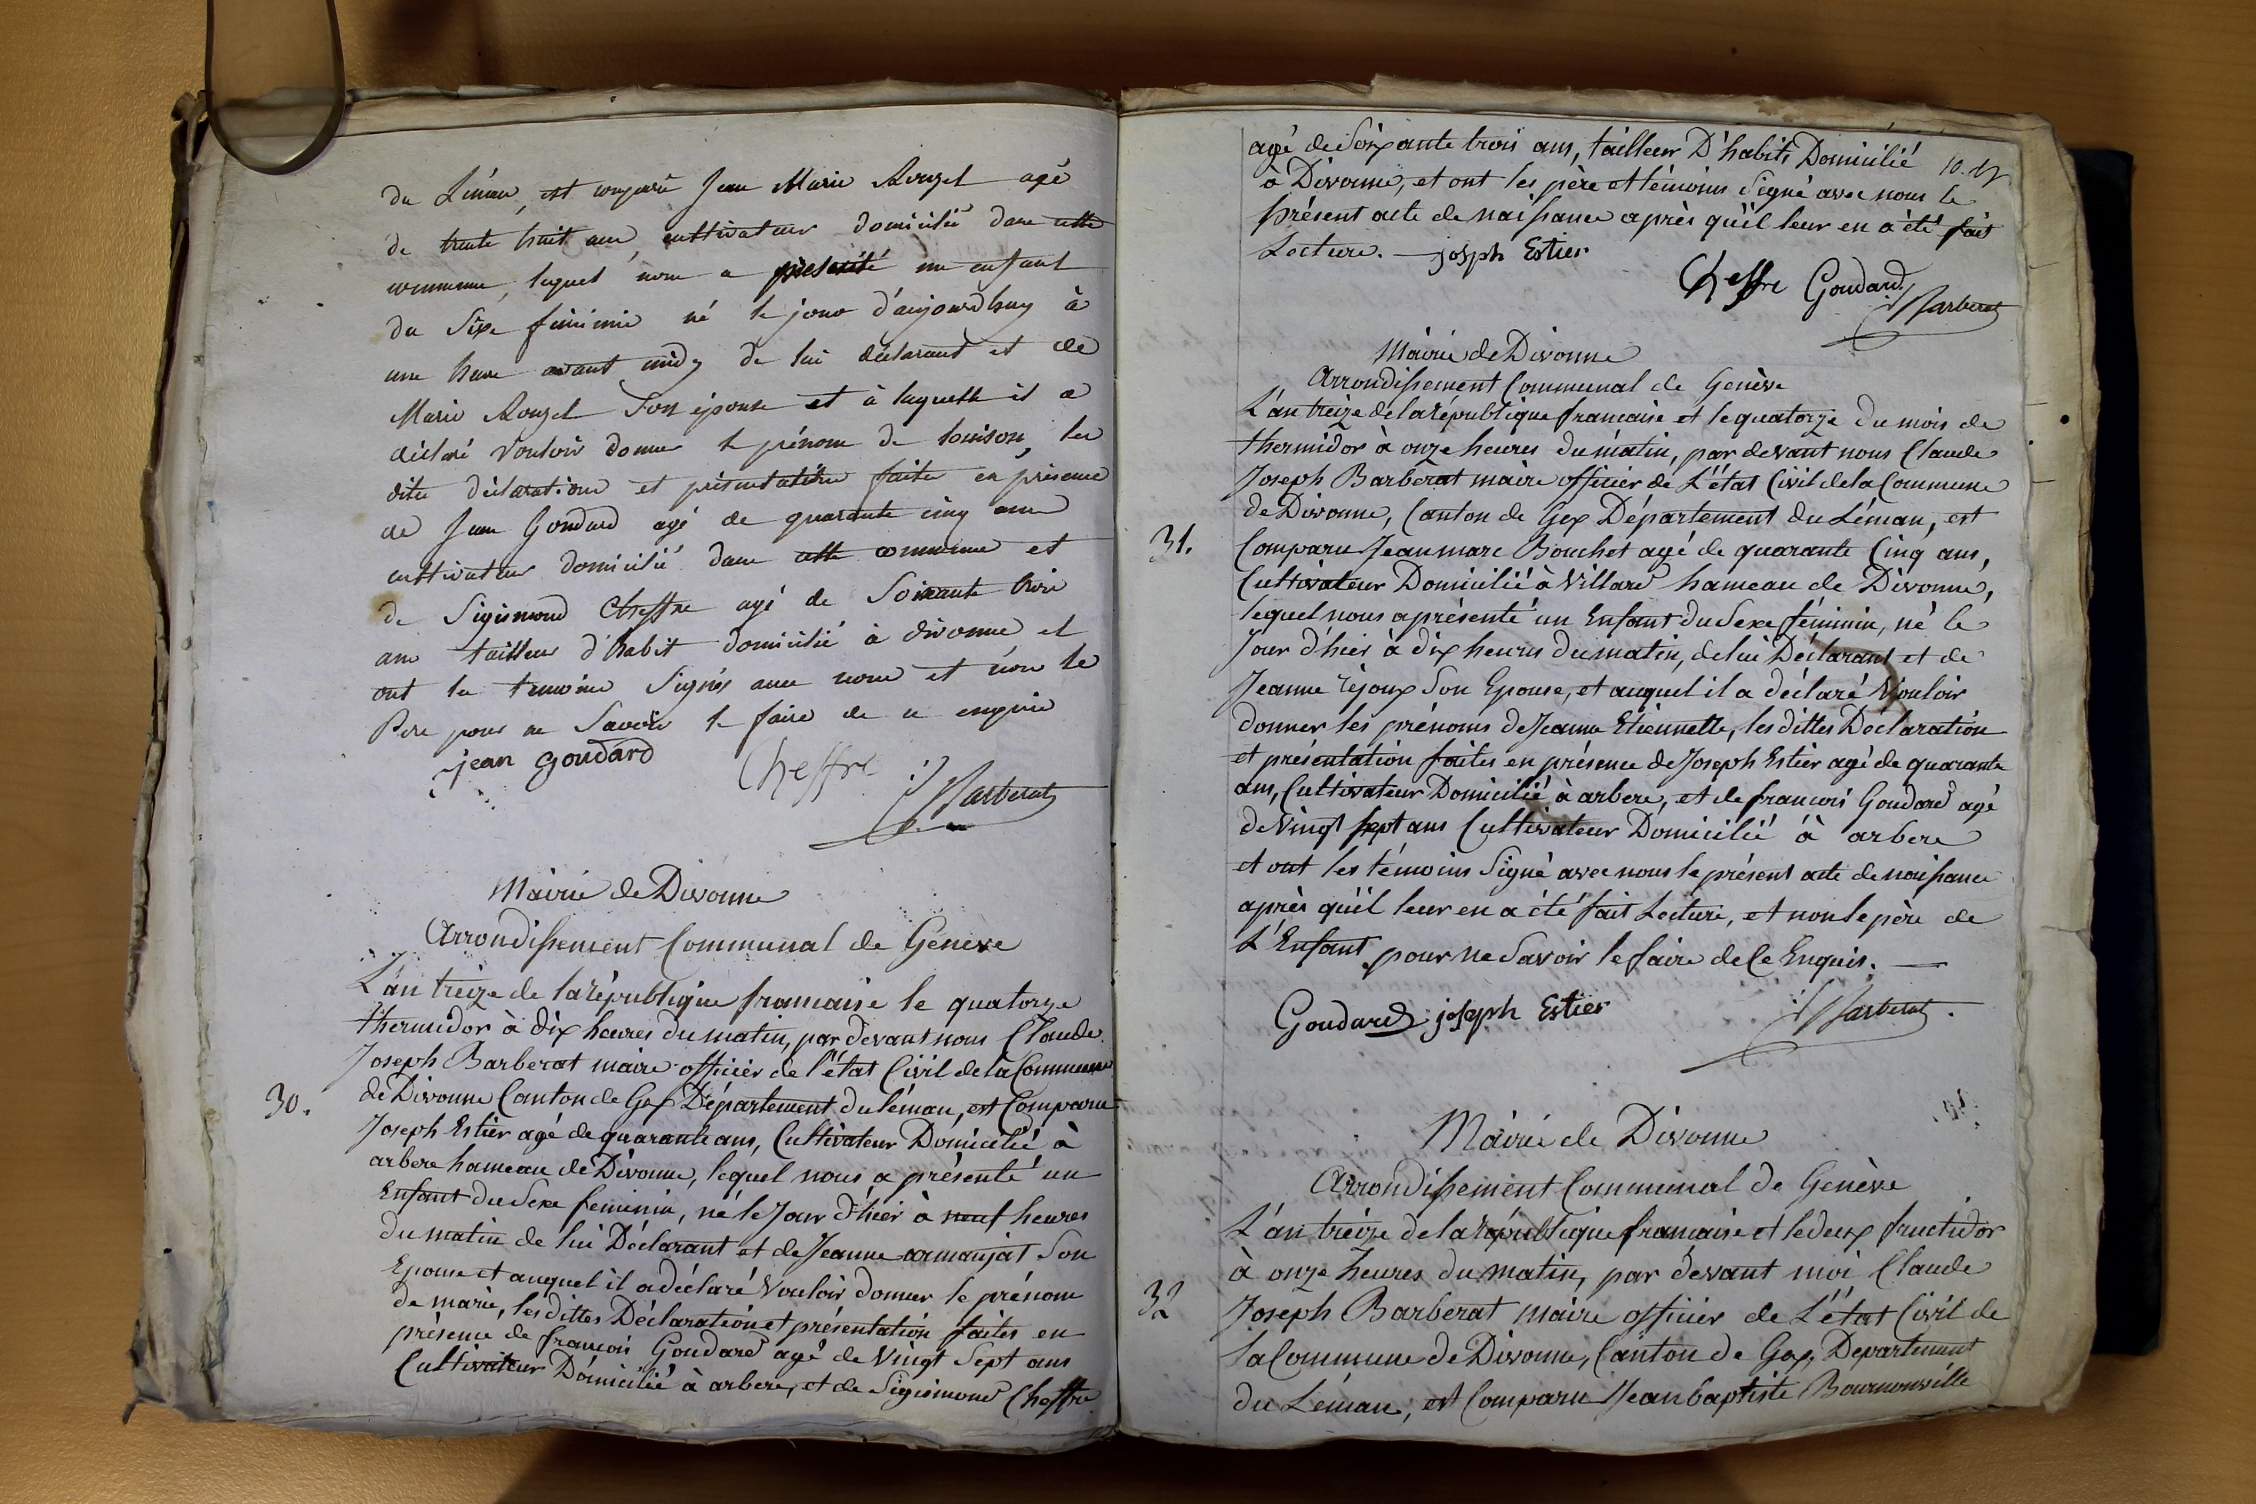 du Léman, est comparu Jean Marie Rouzet agé
de trente huit ans, cultivateur domicilié dans cette
commune, lequel nous a présenté un enfant
du Sexe féminin né le jour d'aujourdhuy à
une heure avant midy de lui déclarant et de
Marie Rouzet Son épouse et à laquelle il a
déclaré Vouloir donner le prénom de Louison, les
dites déclarations et présentation faites en présence
de Jean Goudard agé de quarante cinq ans
cultivateur domicilié dans cette commune et
de Sigismond Cheffre agé de Soixante trois
ans tailleur d'habit domicilié à divonne et
ont les temoins Signés avec nous et non le
Pere pour ne Savoir le faire de ce enquis
jean goudard Cheffre
Barberat
Mairie de Divonne
Arrondissement Communal de Genève
L'an treize de la république francaise le quatorze
thermidor à dix heures du matin, par devant nous Claude
Joseph Barberat maire officier de l'état Civil de la Commune
30. de Divonne Canton de Gex Département du léman, est Comparu
Joseph Estier agé de quarante ans, Cultivateur Domicilié à
arbere hameau de Divonne, lequel nous a présenté un
Enfant du Sexe feminin, né le Jour d'hier à neuf heures
du matin de lui Déclarant et de Jeanne armanjat Son
Epouse et auquel il a déclaré Vouloir donner le prénom
de marie, les dittes Déclaration et présentation faites en
présence de francois Goudard agé de Vingt Sept ans
Cultivateur Domicilié à arbere, et de Sigismond Cheffre
agé de Soixante trois ans, tailleur D'habits Domicilié 10.
à Divonne, et ont les père et témoins Signé avec nous le
présent acte de naissance après qu'il leur en a été fait
Lecture. joseph Estier
Cheffre Goudard
Barberat
Mairie de Divonne
Arrondissement Communal de Genève
L'an treize de la république francaise et le quatorze du mois de
thermidor à onze heures du matin, par devant nous Claude
Joseph Barberat maire officier de L'état Civil de la Commune
de Divonne, Canton de Gex Département du Léman, est
31. Comparu Jean marc Bouchet agé de quarante Cinq ans,
Cultivateur Domicilié à Villard hameau de Divonne,
lequel nous a présenté un Enfant du Sexe féminin, né le
Jour d'hier à dix heures du matin, de lui Déclarant et de
Jeanne réjoux Son Epouse, et auquel il a déclaré Vouloir
donner les prénoms de Jeanne Etiennette, les dittes Déclaration
et présentation faites en présence de Joseph Estier agé de quarante
ans, Cultivateur Domicilié à arbere, et de francois Goudard agé
de Vingt Sept ans Cultivateur Domicilié à arbere
et ont les témoins Signé avec nous le présent acte de naissance
après qu'il leur en a été fait Lecture, et non le père de
L'Enfant pour ne Savoir le faire de Ce Enquis.
Goudard joseph Estier Barberat
Mairie de Divonne
Arrondissement Communal de Genève
L'an treize de la république francaise et le deux fructidor
à onze heures du matin, par devant moi Claude
32 Joseph Barberat maire officier de L'état Civil de
la Commune de Divonne, Canton de Gex, Departement
du Léman, est Comparu Jean baptiste Bournonville